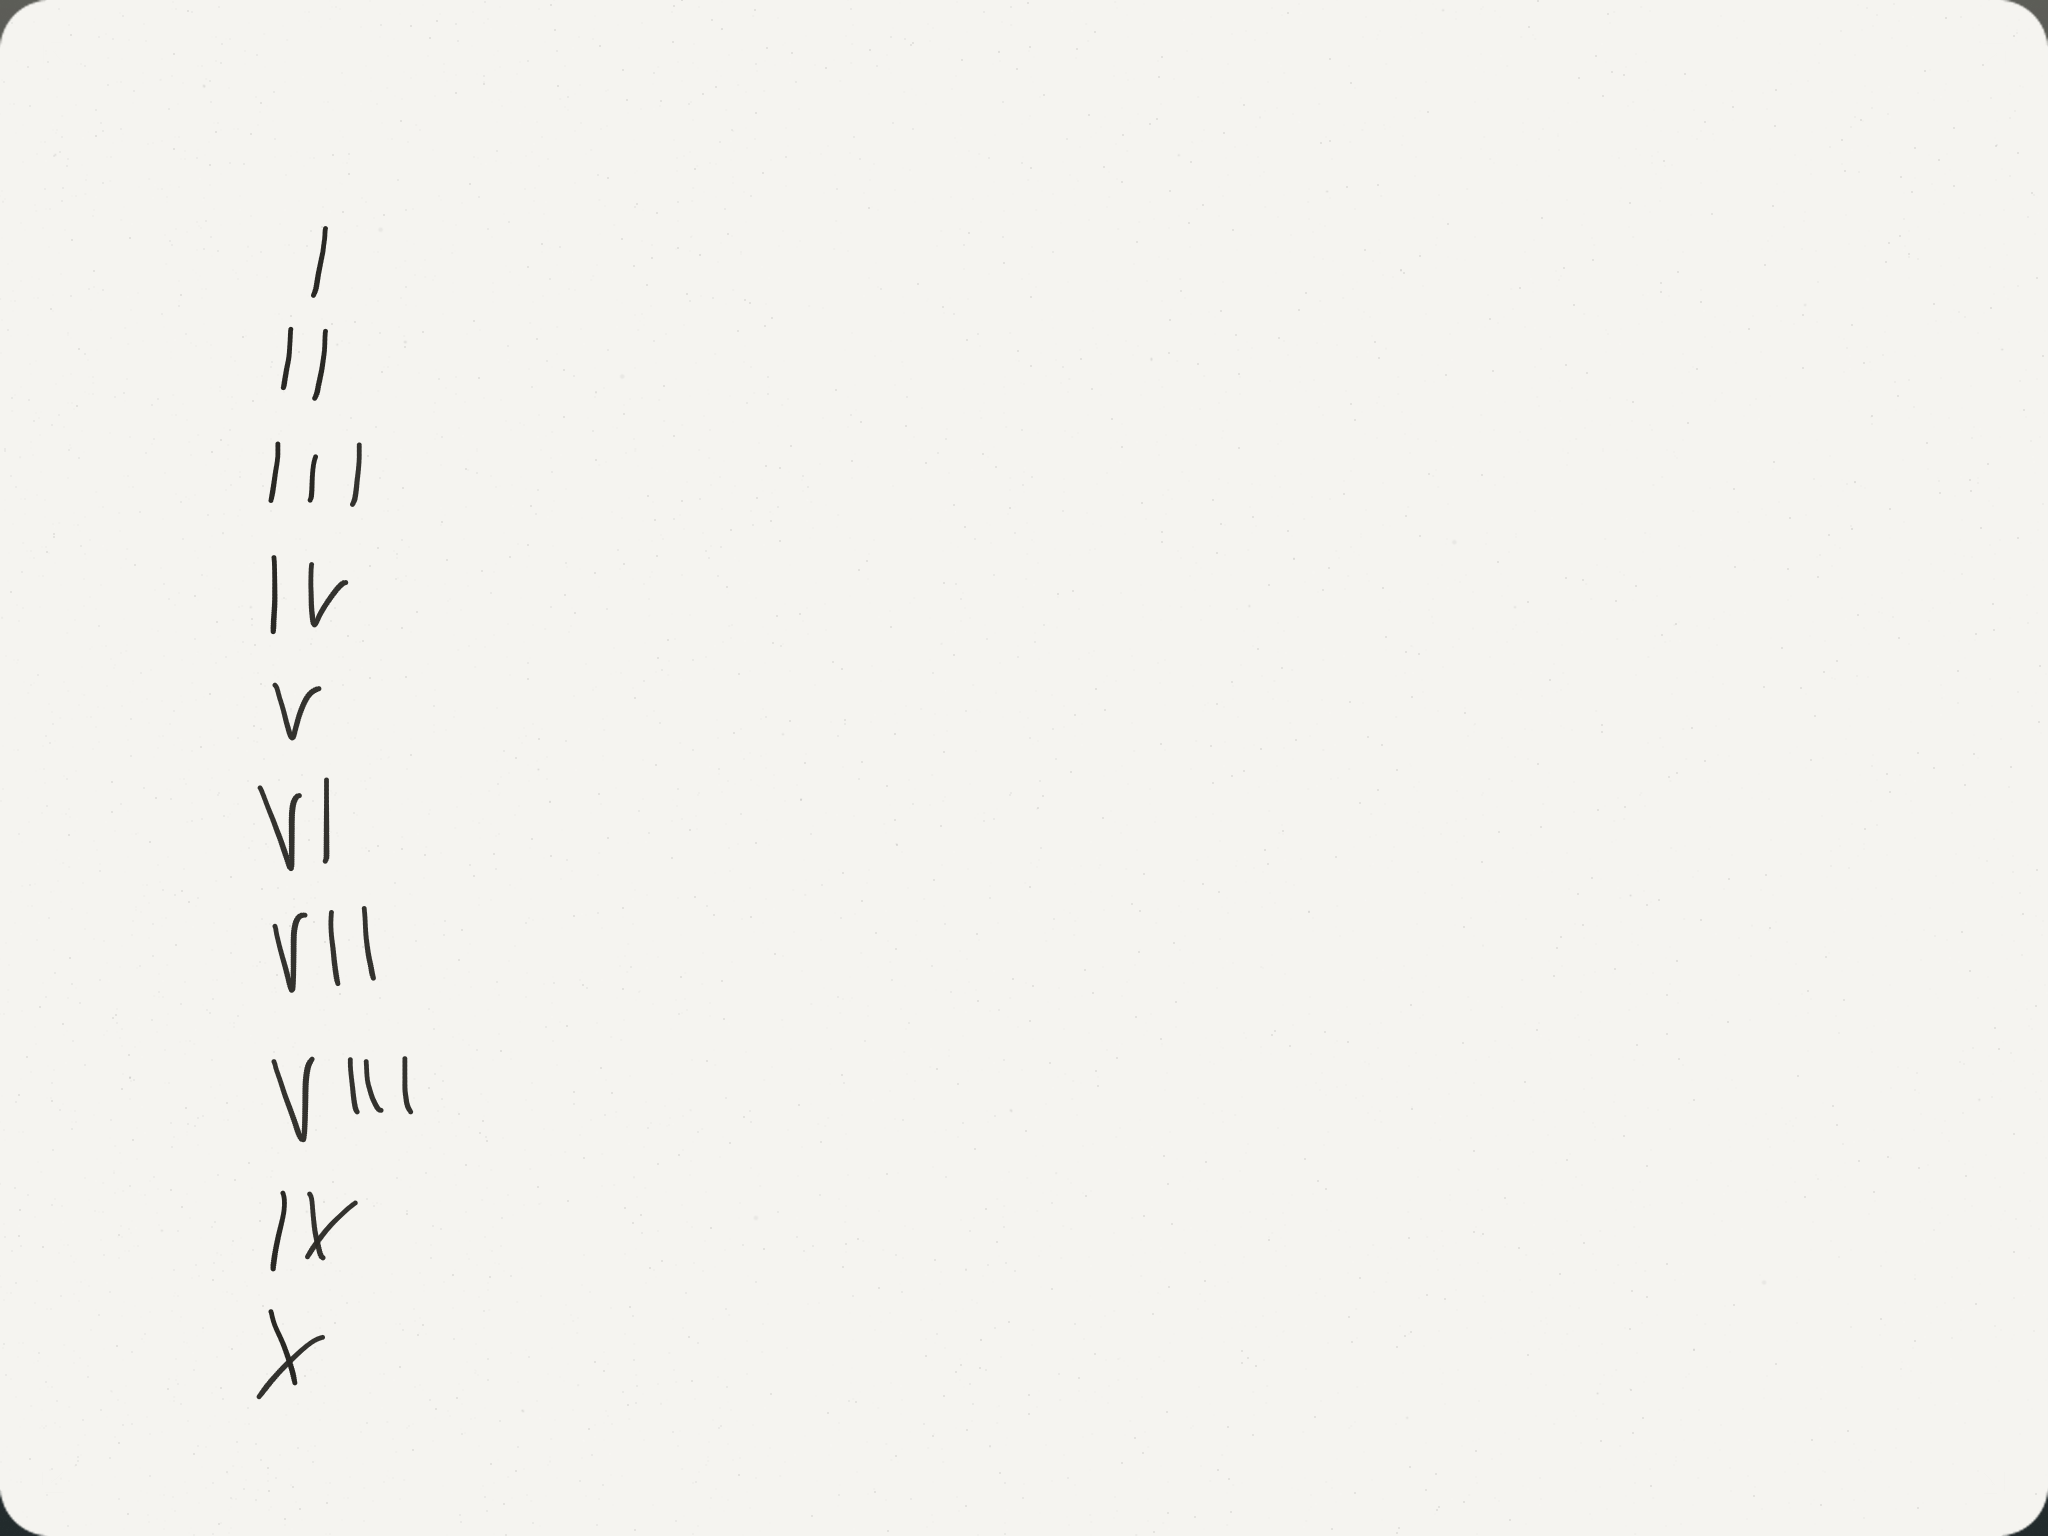 I
II
III
IV
V
VI
VII
VIII
IX
X